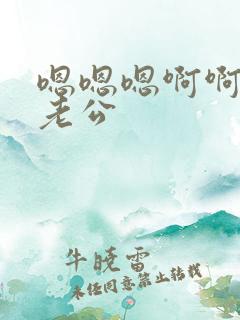 嗯嗯嗯啊啊
老公
牛晓雷
未经同意禁止转载